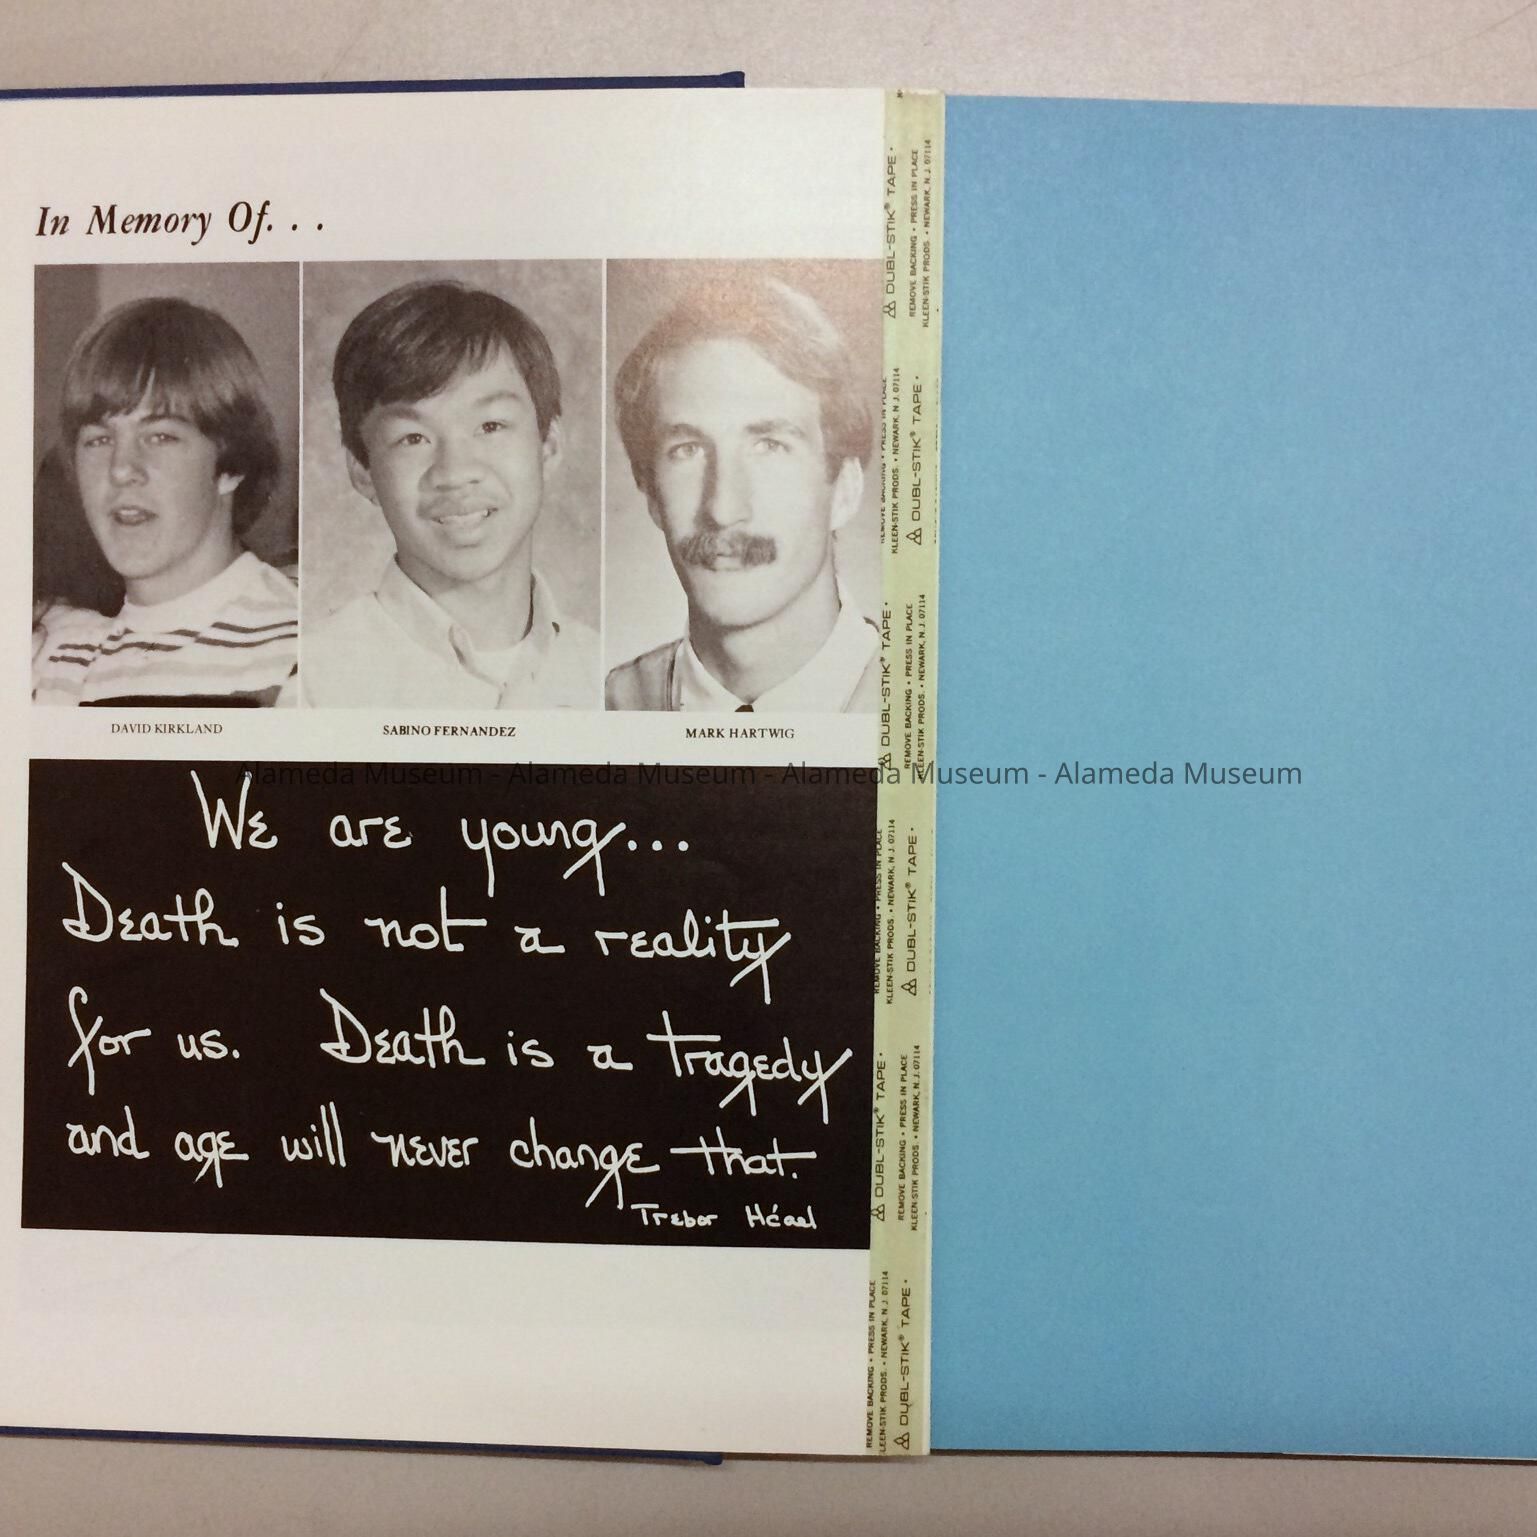 In Memory Of. . .
DAVID KIRKLAND
SABINO FERNANDEZ
MARK HARTWIG
Alameda Museum - Alameda Museum - Alameda Museum - Alameda Museum
We are young...
Death is not a reality
for us. Death is a tragedy
and age will never change that.
Trebor Héael
DUBL-STIK® TAPE •
REMOVE BACKING • PRESS IN PLACE
KLEEN-STIK PRODS. • NEWARK, N.J. 07114
REMOVE BACKING • PRESS IN PLACE
KLEEN-STIK PRODS. • NEWARK, N.J. 07114
DUBL-STIK® TAPE •
DUBL-STIK® TAPE •
REMOVE BACKING • PRESS IN PLACE
KLEEN-STIK PRODS. • NEWARK, N.J. 07114
REMOVE BACKING • PRESS IN PLACE
KLEEN-STIK PRODS. • NEWARK, N.J. 07114
DUBL-STIK® TAPE •
DUBL-STIK® TAPE •
REMOVE BACKING • PRESS IN PLACE
KLEEN-STIK PRODS. • NEWARK, N.J. 07114
REMOVE BACKING • PRESS IN PLACE
KLEEN-STIK PRODS. • NEWARK, N.J. 07114
DUBL-STIK® TAPE •